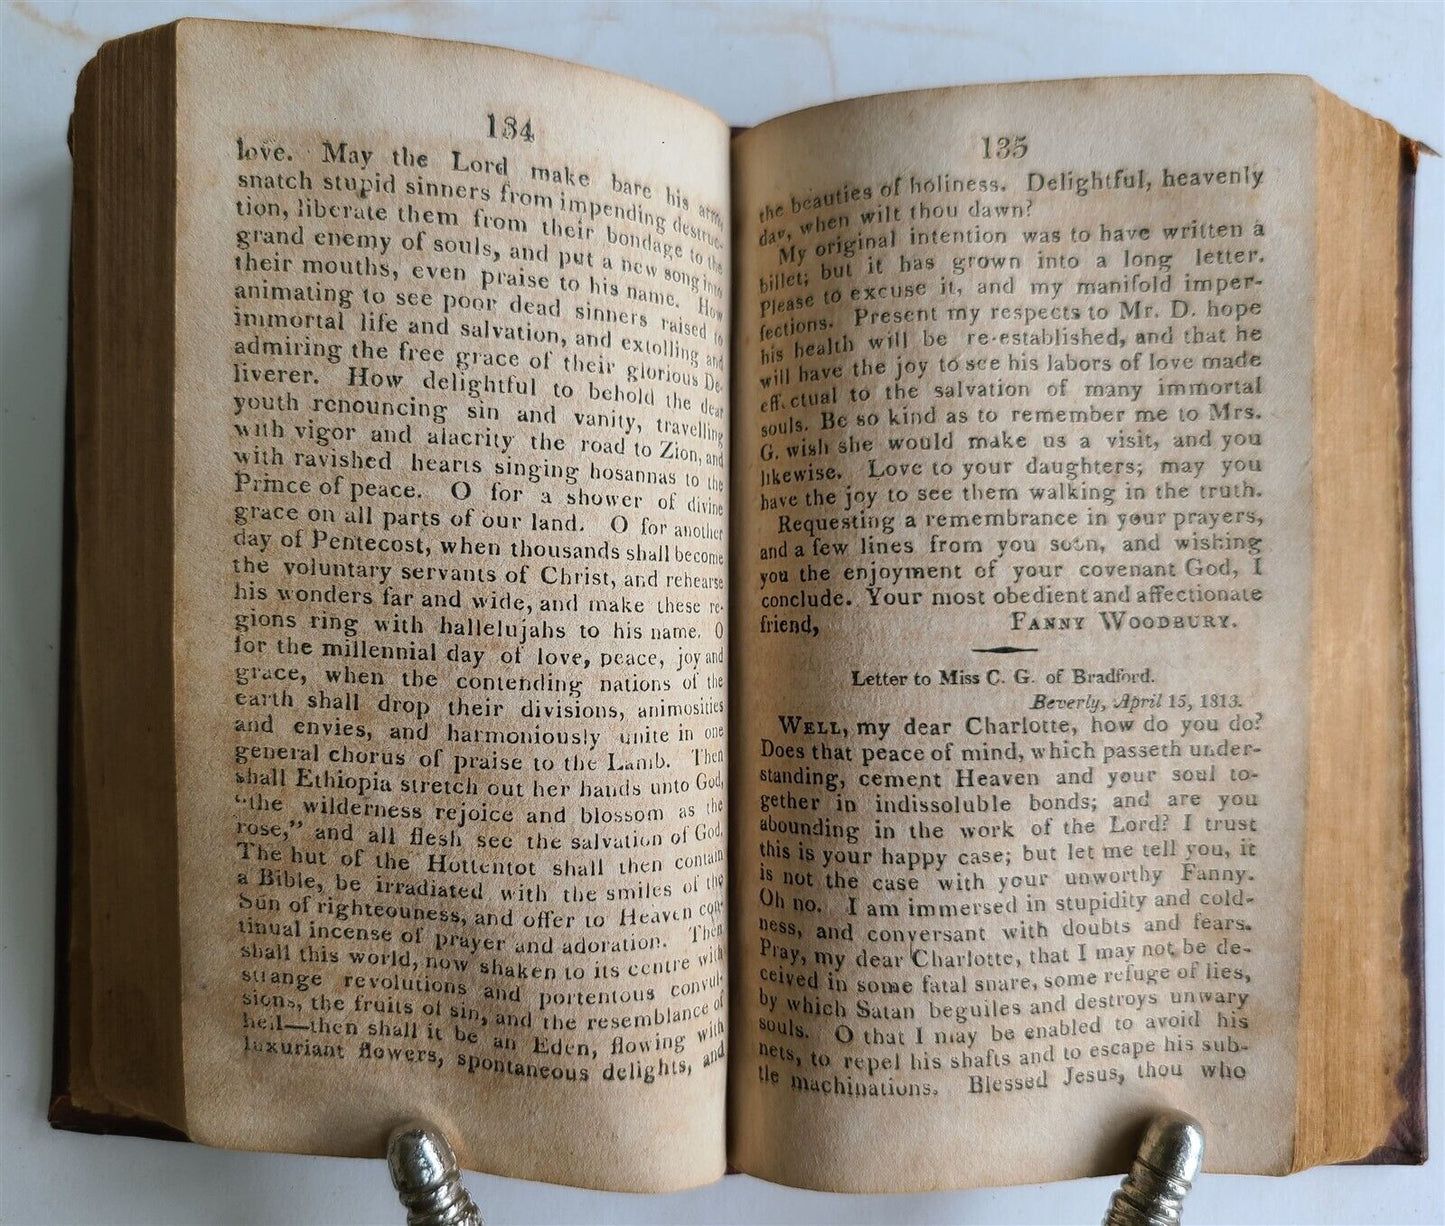 134
love. May the Lord make bare his arm,
snatch stupid sinners from impending destruc-
tion, liberate them from their bondage to the
grand enemy of souls, and put a new song into
their mouths, even praise to his name. How
animating to see poor dead sinners raised to
immortal life and salvation, and extolling and
admiring the free grace of their glorious De-
liverer. How delightful to behold the dear
youth renouncing sin and vanity, travelling
with vigor and alacrity the road to Zion, and
with ravished hearts singing hosannas to the
Prince of peace. O for a shower of divine
grace on all parts of our land. O for another
day of Pentecost, when thousands shall become
the voluntary servants of Christ, and rehearse
his wonders far and wide, and make these re-
gions ring with hallelujahs to his name. O
for the millennial day of love, peace, joy and
grace, when the contending nations of the
earth shall drop their divisions, animosities
and envies, and harmoniously unite in one
general chorus of praise to the Lamb. Then
shall Ethiopia stretch out her hands unto God,
"the wilderness rejoice and blossom as the
rose," and all flesh see the salvation of God.
The hut of the Hottentot shall then contain
a Bible, be irradiated with the smiles of the
Sun of righteouness, and offer to Heaven con-
tinual incense of prayer and adoration. Then
shall this world, now shaken to its centre with
strange revolutions and portentous convul-
sions, the fruits of sin, and the resemblance of
hell—then shall it be an Eden, flowing with
luxuriant flowers, spontaneous delights, and
135
the beauties of holiness. Delightful, heavenly
day, when wilt thou dawn?
My original intention was to have written a
billet; but it has grown into a long letter.
Please to excuse it, and my manifold imper-
fections. Present my respects to Mr. D. hope
his health will be re-established, and that he
will have the joy to see his labors of love made
effectual to the salvation of many immortal
souls. Be so kind as to remember me to Mrs.
G. wish she would make us a visit, and you
likewise. Love to your daughters; may you
have the joy to see them walking in the truth.
Requesting a remembrance in your prayers,
and a few lines from you soon, and wishing
you the enjoyment of your covenant God, I
conclude. Your most obedient and affectionate
friend, FANNY WOODBURY.
Letter to Miss C. G. of Bradford.
Beverly, April 15, 1813.
WELL, my dear Charlotte, how do you do?
Does that peace of mind, which passeth under-
standing, cement Heaven and your soul to-
gether in indissoluble bonds; and are you
abounding in the work of the Lord? I trust
this is your happy case; but let me tell you, it
is not the case with your unworthy Fanny.
Oh no. I am immersed in stupidity and cold-
ness, and conversant with doubts and fears.
Pray, my dear Charlotte, that I may not be de-
ceived in some fatal snare, some refuge of lies,
by which Satan beguiles and destroys unwary
souls. O that I may be enabled to avoid his
nets, to repel his shafts and to escape his sub-
tle machinations. Blessed Jesus, thou who